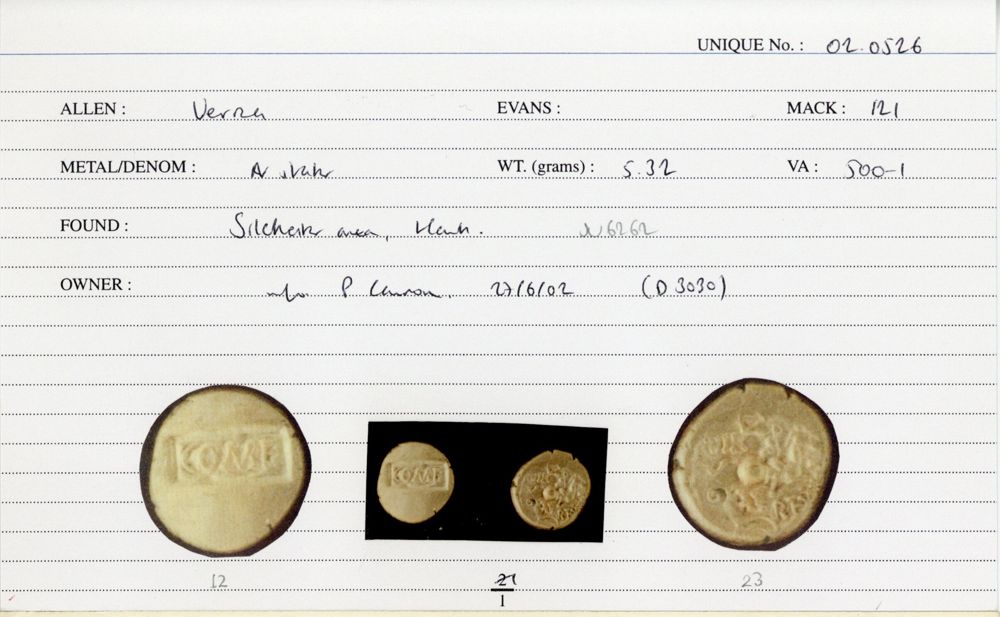 UNIQUE No. : 02.0526
ALLEN : Verica EVANS : MACK : 121
METAL/DENOM : AV stater WT. (grams) : 5.32 VA : 500-1
FOUND : Silchester area, Hants. N6262
OWNER : P 27/6/02 (D 3030)
COMF
REX
12 21 23
1